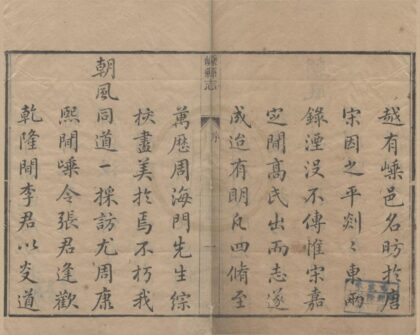 越有嵊邑名昉於唐
宋因之平剡〻東兩
錄湮没不傳惟宋嘉
定間高氏出而志遂
成迨有明凡四脩至
嵊縣志
序
一
萬歷周海門先生綜
挍盡美於焉不朽我
朝風同道一採訪尤周康
熙間嵊令張君逢歡
乾隆間李君以炎道